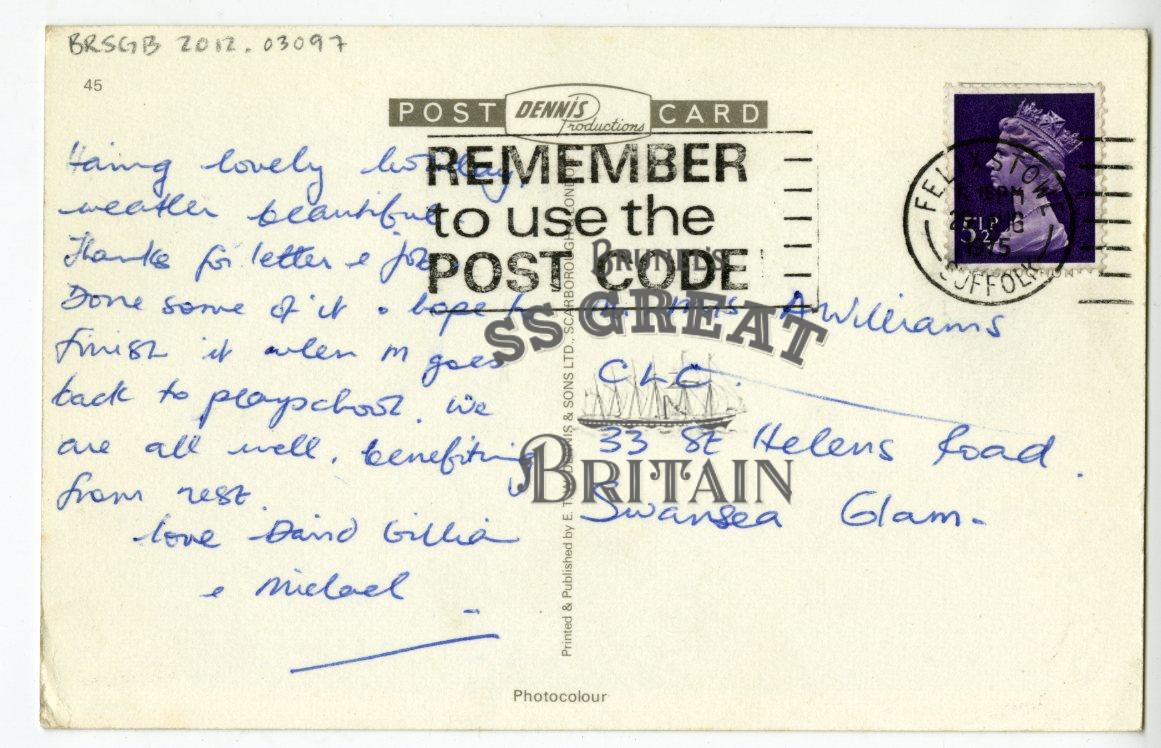 BRSGB 2012.03097
45
POST DENNIS Productions CARD
REMEMBER
to use the
POST CODE
FELIXSTOWE
SUFFOLK
1975
5½P
Having lovely holiday,
weather beautiful
Thanks for letter &
Done some of it . hope to
finish it when M goes
back to playschool. We
are all well, benefiting
from rest.
love David Gillian
& Michael
Mrs A Williams
CLC.
33 St Helens Road.
Swansea Glam.
BRUNEL'S
SS GREAT
BRITAIN
Printed & Published by E. T. W. DENNIS & SONS LTD., SCARBOROUGH & LONDON
Photocolour